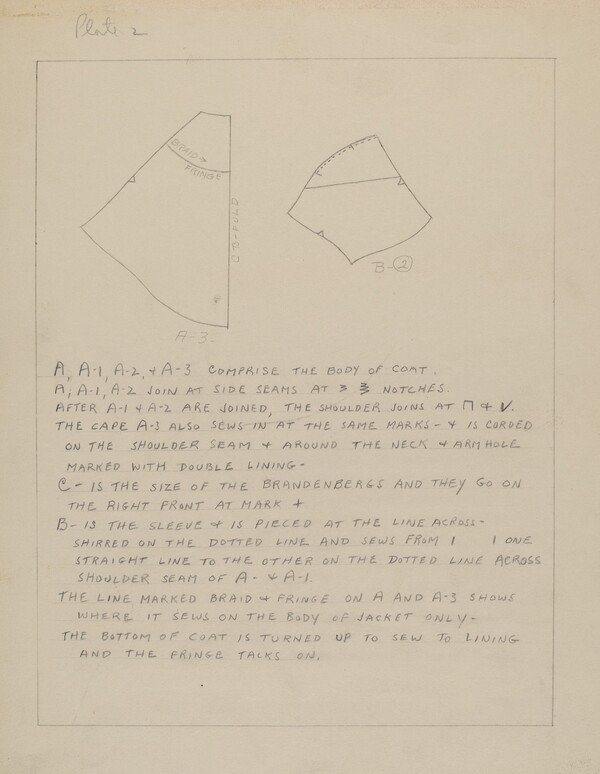 Plate 2
BRAID &
FRINGE
CB-FOLD
A-3.
B-2
A, A-1, A-2, & A-3 COMPRISE THE BODY OF COAT.
A, A-1, A-2 JOIN AT SIDE SEAMS AT NOTCHES.
AFTER A-1 & A-2 ARE JOINED, THE SHOULDER JOINS AT & V.
THE CAPE A-3 ALSO SEWS IN AT THE SAME MARKS - & IS CORDED
ON THE SHOULDER SEAM & AROUND THE NECK & ARMHOLE
MARKED WITH DOUBLE LINING -
C - IS THE SIZE OF THE BRANDENBERGS AND THEY GO ON
THE RIGHT FRONT AT MARK +
B - IS THE SLEEVE & IS PIECED AT THE LINE ACROSS -
SHIRRED ON THE DOTTED LINE AND SEWS FROM 1 1 ONE
STRAIGHT LINE TO THE OTHER ON THE DOTTED LINE ACROSS
SHOULDER SEAM OF A - & A-1.
THE LINE MARKED BRAID & FRINGE ON A AND A-3 SHOWS
WHERE IT SEWS ON THE BODY OF JACKET ONLY -
THE BOTTOM OF COAT IS TURNED UP TO SEW TO LINING
AND THE FRINGE TACKS ON.